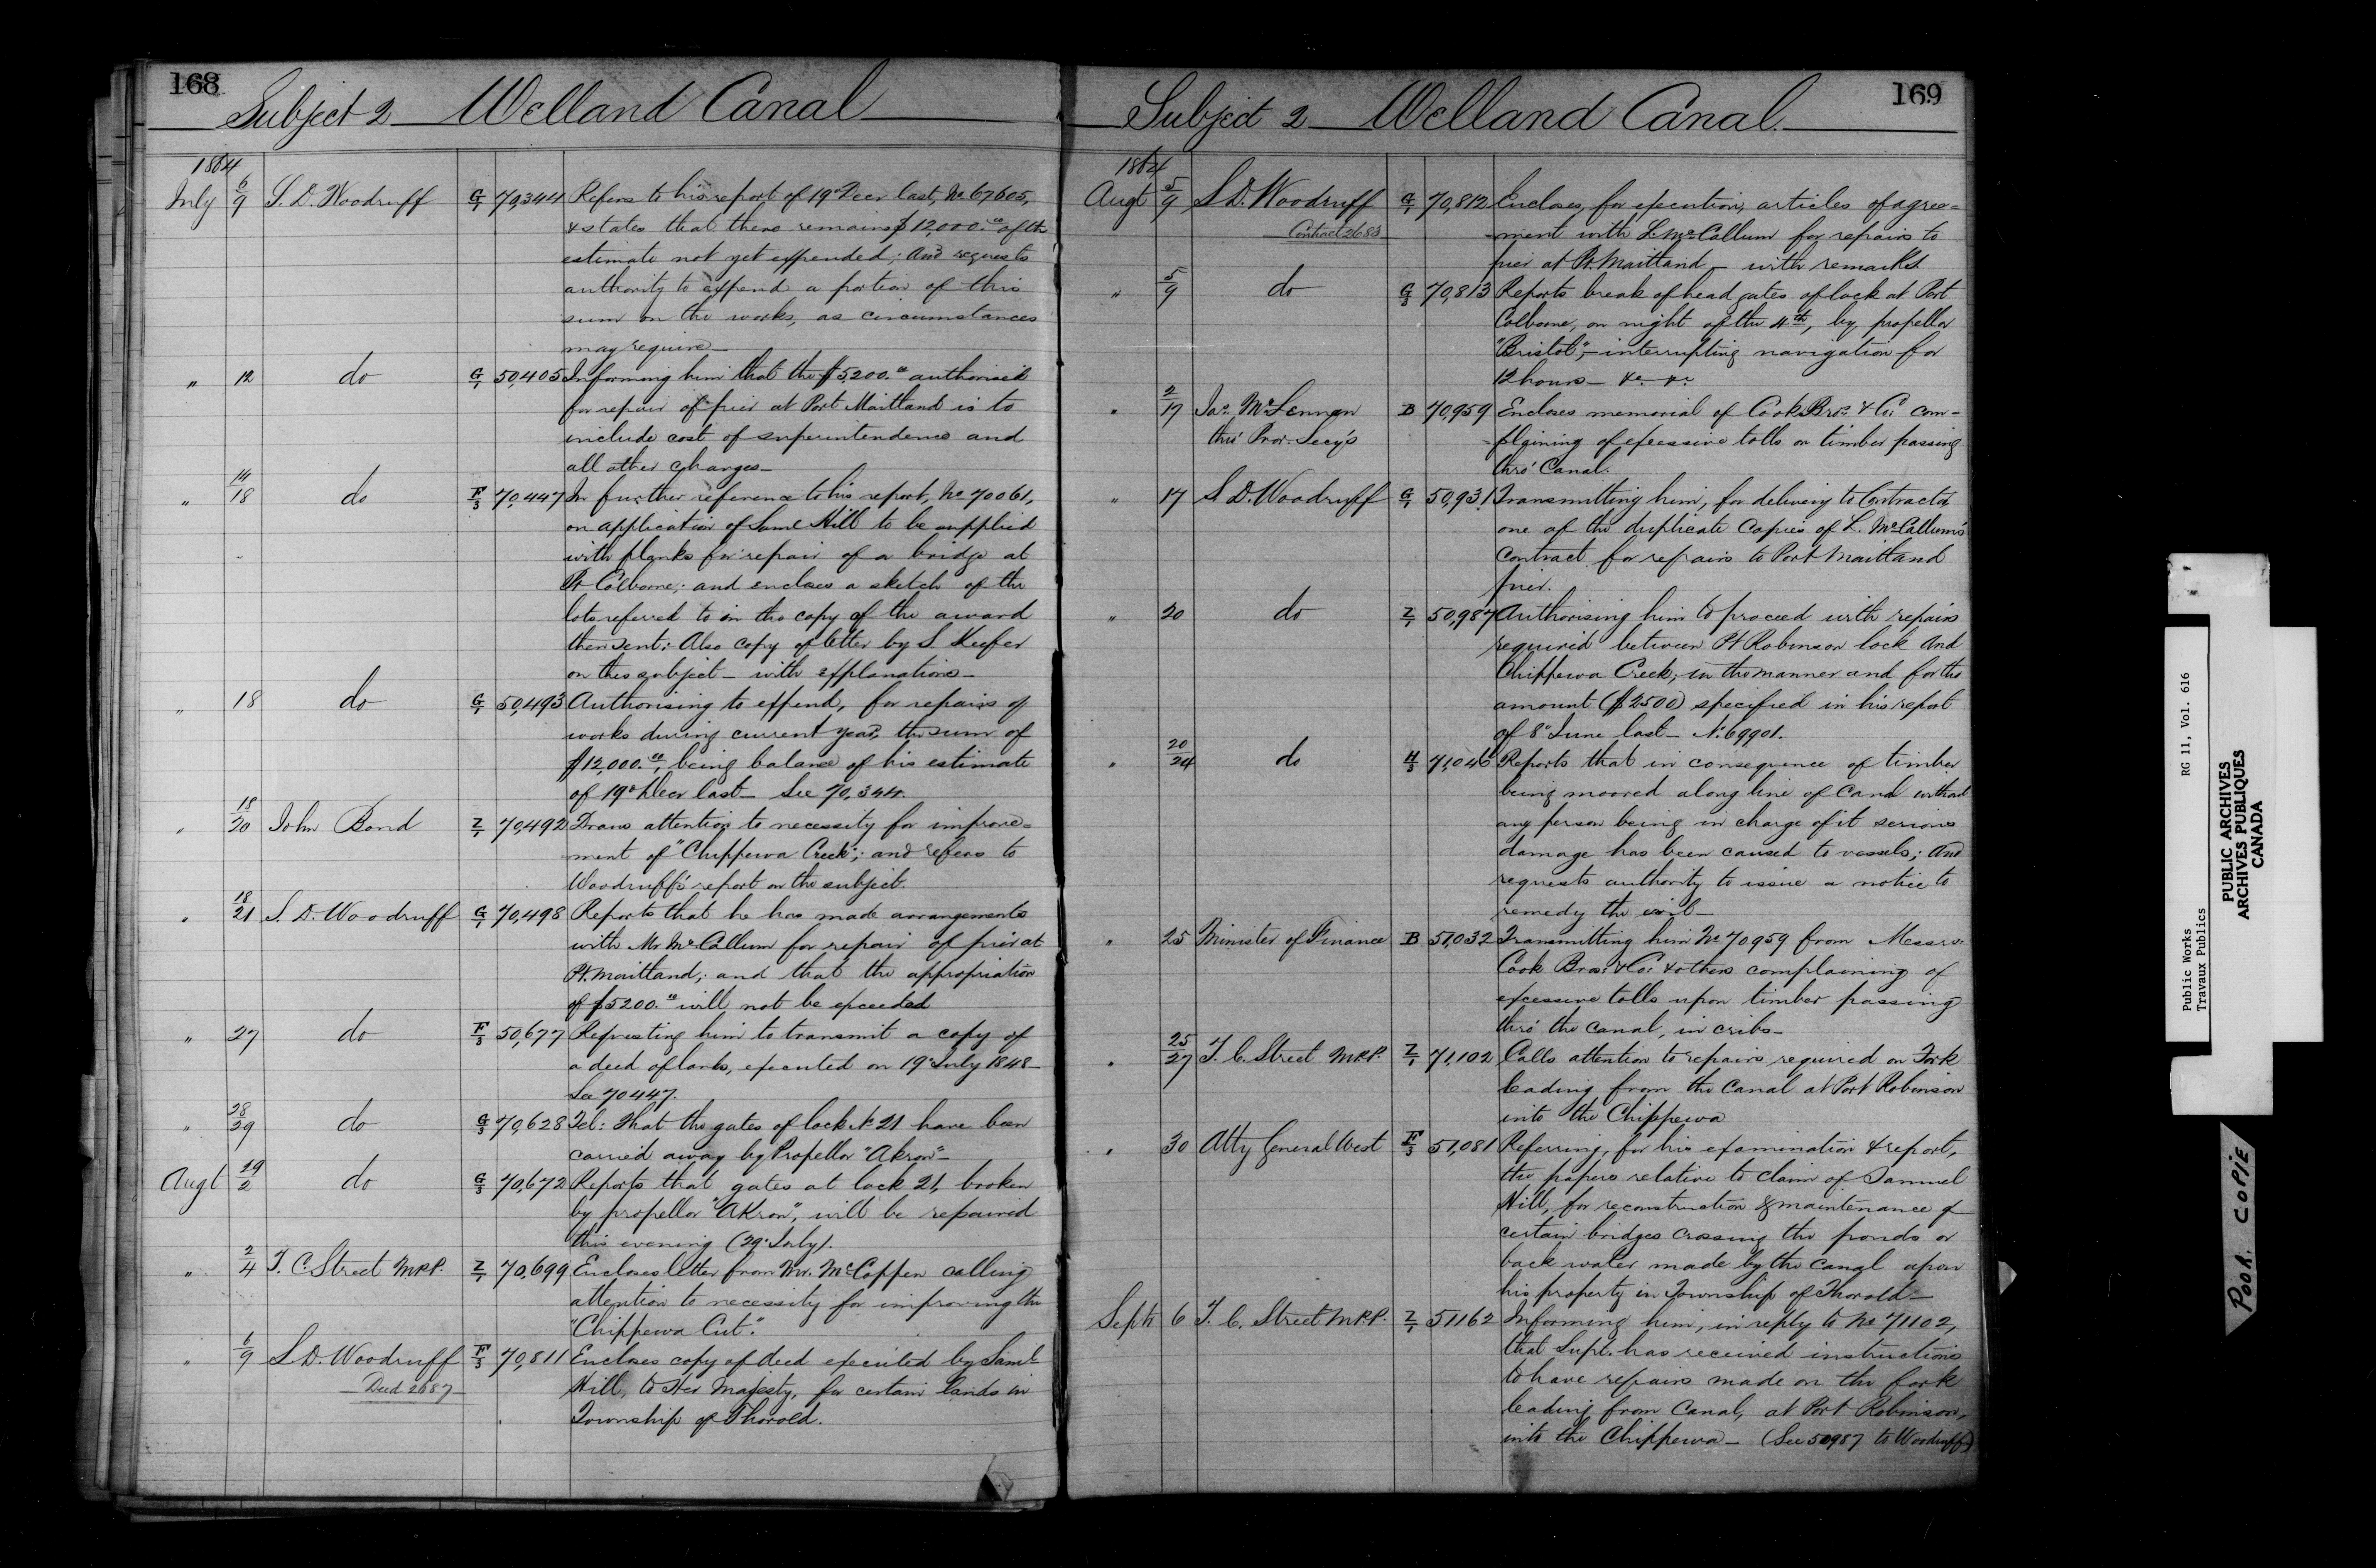 168
Subject 2 Welland Canal
1864
July 6/9 S. D. Woodruff G/1 70,344 Refers to his report of 19th Decr last, No 67605,
& states that there remains $12,000.00 of the
estimate not yet expended; and requests
authority to expend a portion of this
sum on the works, as circumstances
may require—
" 12 do G/1 50,405 Informing him that the $5,200.00 authorised
for repair of pier at Port Maitland is to
include cost of superintendence and
all other charges—
" 14/18 do F/3 70,447 In further reference to his report, No 70061,
on application of Saml Hill to be supplied
with planks for repair of a bridge at
Pt Colborne; and encloses a sketch of the
lots referred to in the copy of the award
then sent; Also copy of letter by S. Keefer
on this subject — with explanations—
" 18 do G/1 50,493 Authorising to expend, for repairs of
works during current year, the sum of
$12,000.00, being balance of his estimate
of 19th Decr last — See 70,344.
" 18/20 John Bond Z/1 70,492 Draws attention to necessity for improve=
ment of "Chippewa Creek"; and refers to
Woodruff's report on the subject.
" 18/21 S. D. Woodruff G/1 70,498 Reports that he has made arrangements
with Mr McCallum for repair of pier at
Pt. Maitland; and that the appropriation
of $5200.00 will not be exceeded
" 27 do F/3 50,677 Requesting him to transmit a copy of
a deed of lands, executed on 19th July 1848—
See 70447.
" 28/29 do G/3 70,628 Tel: that the gates of lock No 21 have been
carried away by Propellor "Akron"—
Augt 29/2 do G/3 70,672 Reports that gates at lock 21, broken
by propellor "Akron", will be repaired
this evening (29th July).
" 2/4 T. C. Street MPP. Z/1 70,699 Encloses letter from Mr. McCoppen calling
attention to necessity for improving the
"Chippewa Cut".
" 6/9 S. D. Woodruff F/3 70,811 Encloses copy of deed executed by Saml
Deed 2687
Hill, to Her Majesty, for certain lands in
Township of Thorold.
169
Subject 2 Welland Canal.
1864
Augt 5/9 S. D. Woodruff G/1 70,812 Encloses, for execution, articles of agree=
Contract 2683
ment with L. McCallum for repairs to
pier at Pt. Maitland — with remarks.
" 5/9 do G/3 70,813 Reports break of head gates of lock at Port
Colborne, on night of the 4th, by propellor
"Bristol", — interrupting navigation for
12 hours — &c. &c.
" 2/17 Jas. McLennan B 70,959 Encloses memorial of Cook Bros. & Co: com-
thro' Prov. Secy's
plaining of excessive tolls on timber passing
thro' Canal.
" 17 S. D. Woodruff G/1 50,931 Transmitting him, for delivery to Contractor
one of the duplicate copies of L. McCallum's
contract for repairs to Port Maitland
pier.
" 20 do Z/1 50,987 Authorising him to proceed with repairs
required between Pt Robinson lock and
Chippewa Creek, in the manner and for the
amount ($2500) specified in his report
of 8th June last — No. 69901.
" 20/24 do H/3 71,046 Reports that in consequence of timber
being moored along line of Canal without
any person being in charge of it serious
damage has been caused to vessels; and
requests authority to issue a notice to
remedy the evil—
" 25 Minister of Finance B 51,032 Transmitting him No 70959 from Messrs.
Cook Bros: & Co: & others complaining of
excessive tolls upon timber passing
thro' the canal, in cribs—
" 25/27 T. C. Street MPP. Z/1 71,102 Calls attention to repairs required on Fork
leading from the Canal at Port Robinson
into the Chippewa
" 30 Atty General West F/3 51,081 Referring, for his examination & report,
the papers relative to claim of Samuel
Hill, for reconstruction & maintenance of
certain bridges crossing the ponds or
back water made by the canal upon
his property in Township of Thorold—
Sept. 6 T. C. Street M.P.P. Z/1 51162 Informing him, in reply to No 71102,
that Supt. has received instructions
to have repairs made on the fork
leading from Canal, at Port Robinson,
into the Chippewa — (See 50987 to Woodruff)
Public Works RG 11, Vol. 616
Travaux Publics
PUBLIC ARCHIVES
ARCHIVES PUBLIQUES
CANADA
POOR COPIE